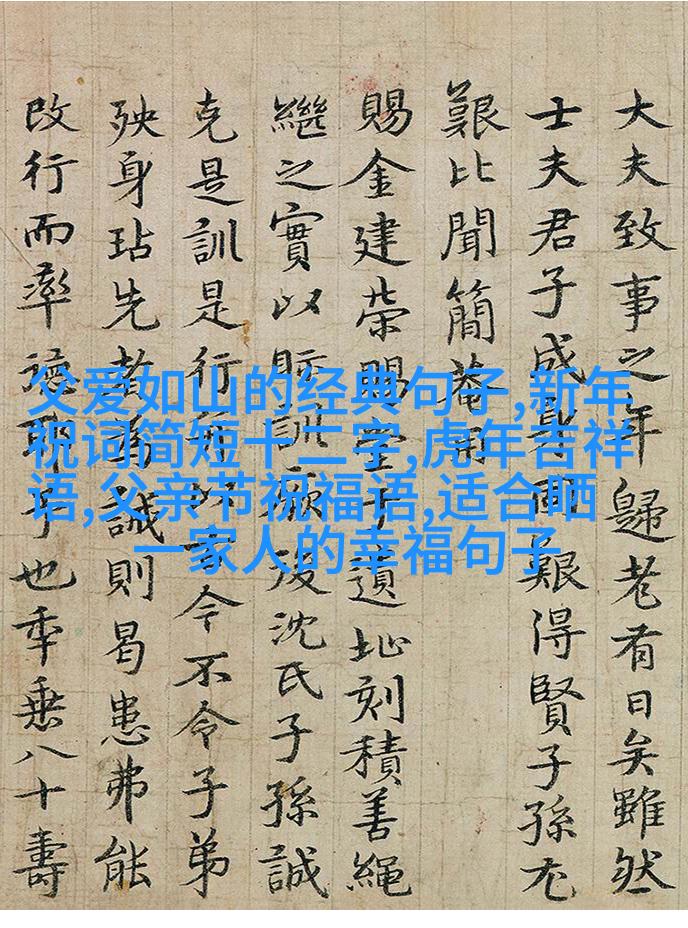 大夫致事之年歸老有日矣雖然
士夫君子成艱得賢子孫尤
艱比聞簡菴用
賜金建榮賜堂于遺址刻積善繩
繼之實以貽訓厥後沈氏子孫誠
克是訓是行令不令子弟
殃身玷先者為誡則曷患弗能
改行而率德耶予也年垂八十壽
父爱如山的经典句子,新年
祝词简短十二字,虎年吉祥
语,父亲节祝福语,适合晒
一家人的幸福句子